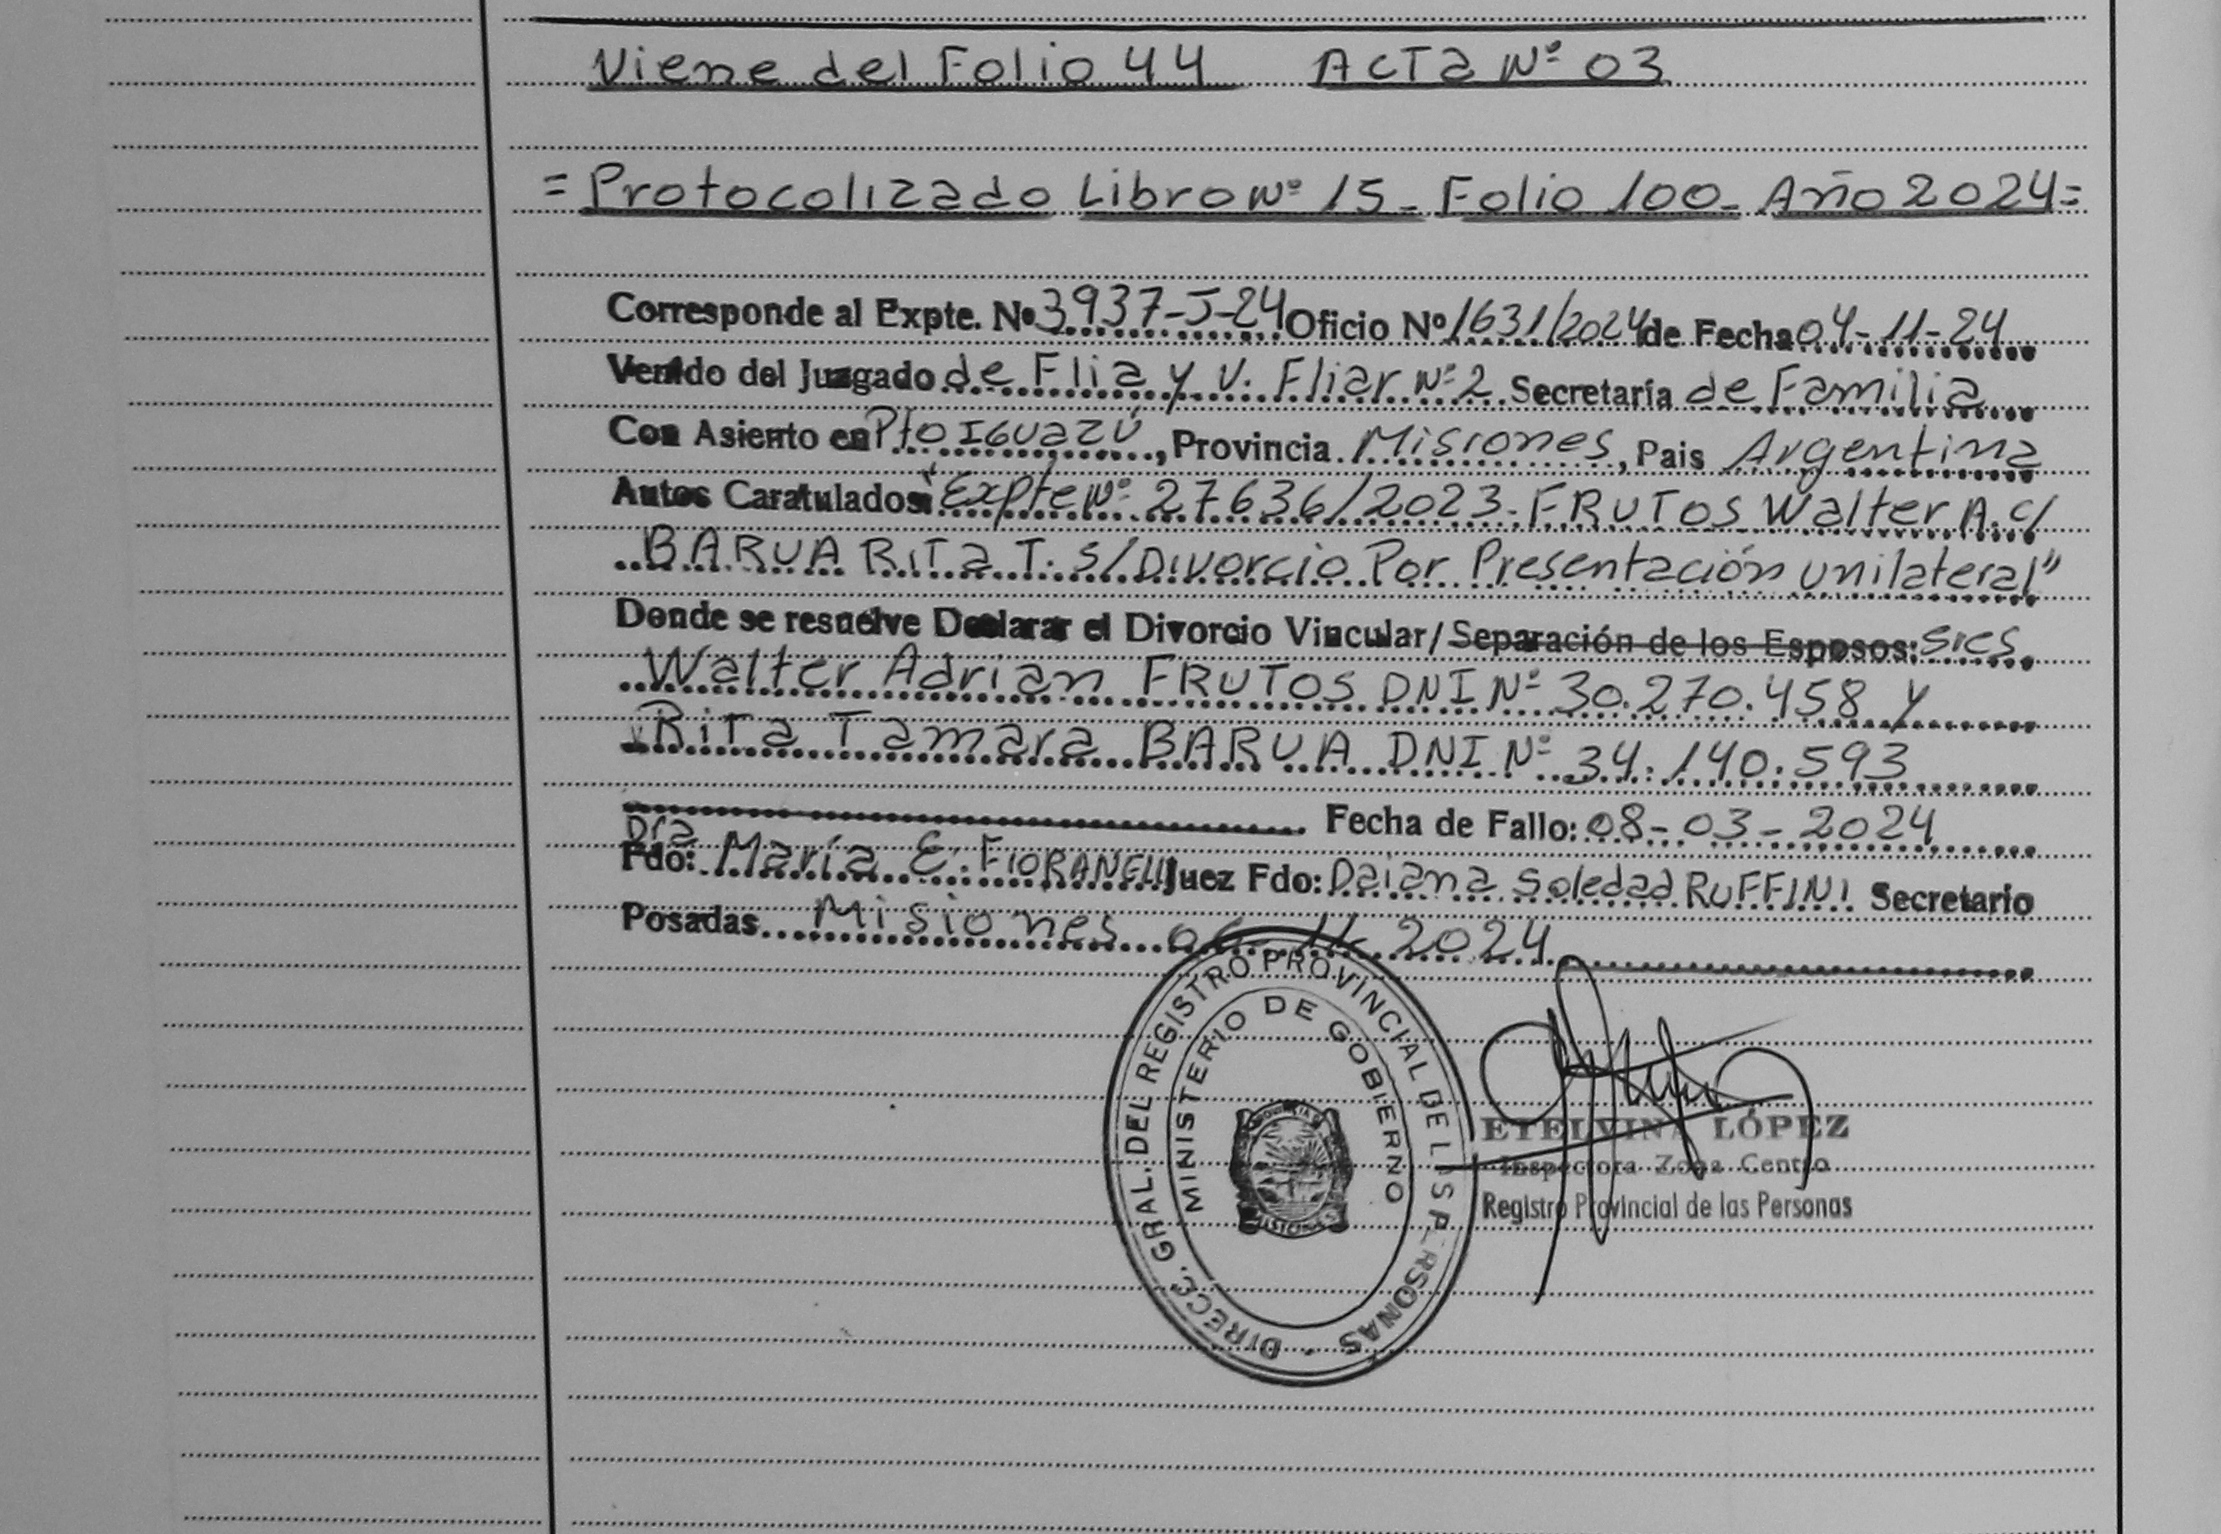 Viene del Folio 44 Acta Nº 03
= Protocolizado Libro Nº 15 - Folio 100 - Año 2024 =
Corresponde al Expte. Nº 3937-J-24 Oficio Nº 1631/2024 de Fecha 04-11-24
Venido del Juzgado de Flia y V. Fliar Nº 2 Secretaría de Familia
Con Asiento en Pto Iguazú, Provincia Misiones, Pais Argentina
Autos Caratulados: "Expte Nº 27636/2023 - FRUTOS Walter A. c/
BARUA Rita T. s/ Divorcio Por Presentación unilateral"
Donde se resuelve Declarar el Divorcio Vincular/Separación de los Esposos: sres
Walter Adrian FRUTOS DNI Nº 30.270.458 y
Rita Tamara BARUA DNI Nº 34.140.593
Fecha de Fallo: 08-03-2024
Dra
Fdo: María E. FIORANELLI Juez Fdo: Daiana Soledad RUFFINI Secretario
Posadas Misiones 06-11-2024
DIRECC. GRAL. DEL REGISTRO PROVINCIAL DE LAS PERSONAS
MINISTERIO DE GOBIERNO
ETELVINA LÓPEZ
Inspectora Zona Centro
Registro Provincial de las Personas